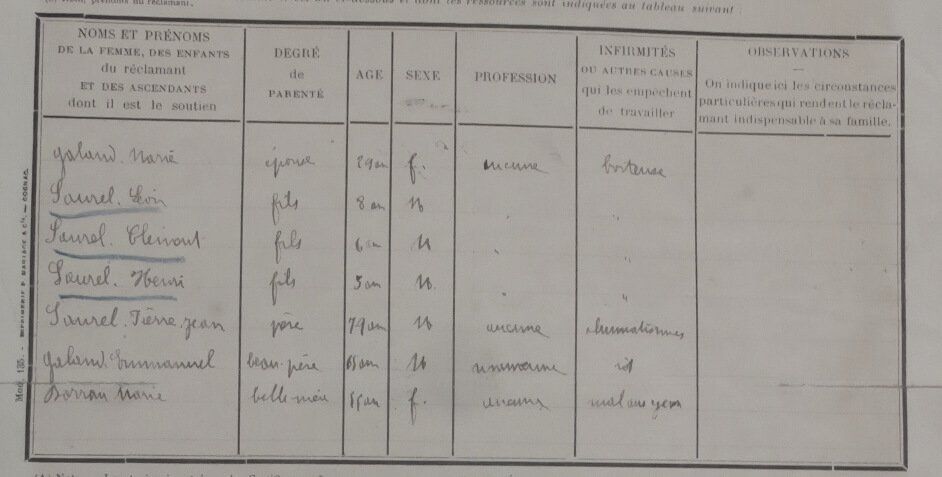 sont indiquées au tableau suivant :
NOMS ET PRÉNOMS
DE LA FEMME, DES ENFANTS
du réclamant
ET DES ASCENDANTS
dont il est le soutien
DEGRÉ
de
PARENTÉ
AGE
SEXE
PROFESSION
INFIRMITÉS
OU AUTRES CAUSES
qui les empêchent
de travailler
OBSERVATIONS
On indique ici les circonstances
particulières qui rendent le récla-
mant indispensable à sa famille.
galand. Marie épouse 29 an f. aucune boiteuse
Saurel. Léon fils 8 an M
Saurel. Clément fils 6 an M
Saurel. Henri fils 5 an M.
Saurel. Pierre. Jean père 79 an M aucune rhumatismes
galand. Emmanuel beau-père an M
Marie belle-mère an f. mal aux yeux
Mod. 135. - IMPRIMERIE P. MARIAGE & Cie. — COGNAC.